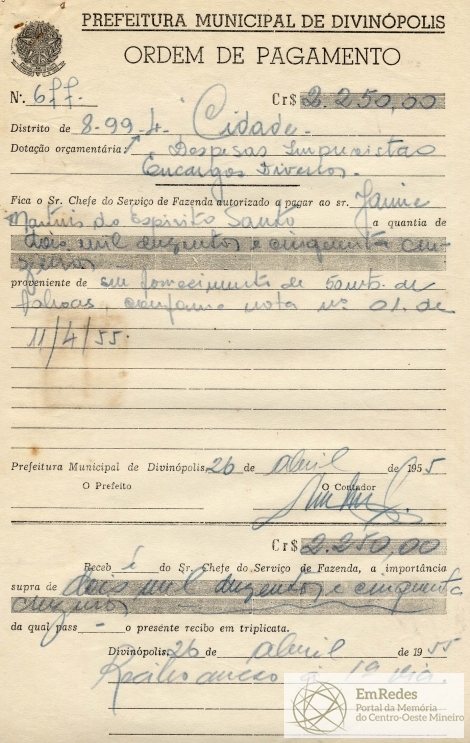 PREFEITURA MUNICIPAL DE DIVINÓPOLIS
ORDEM DE PAGAMENTO
N.º 677 Cr$ 2.250,00
Distrito de 8-99-4- Cidade
Dotação orçamentária: Despesas Imprevistas
Encargos Diversos.
Fica o Sr. Chefe do Serviço de Fazenda autorizado a pagar ao sr. Jaime
Martins do Espírito Santo a quantia de
dois mil duzentos e cinquenta cru-
zeiros
proveniente de seu fornecimento de
conforme nota nº 01. de
11/4/55.
Prefeitura Municipal de Divinópolis, 26 de abril de 1955
O Prefeito O Contador
Cr$ 2.250,00
Receb i do Sr. Chefe do Serviço de Fazenda, a importância
supra de dois mil duzentos e cinquenta
cruzeiros
da qual pass - o presente recibo em triplicata.
Divinópolis, 26 de abril de 1955
Recibo anexo à 1ª via.
EmRedes
Portal da Memória
do Centro-Oeste Mineiro